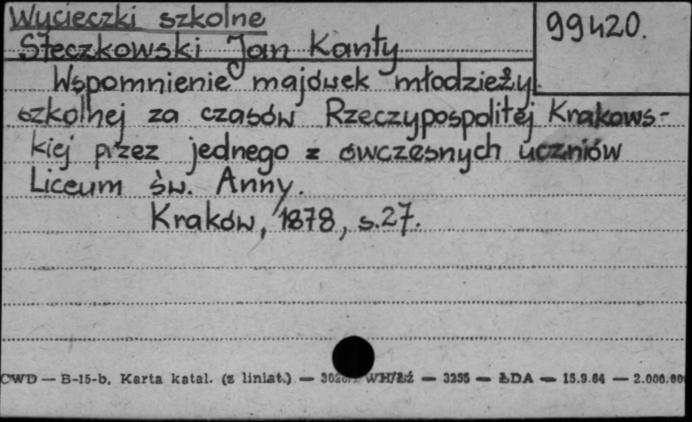 Wycieczki szkolne
99420.
Steczkowski Jan Kanty
Wspomnienie majówek młodzieży
szkolnej za czasów Rzeczypospolitej Krakows-
kiej przez jednego z ówczesnych uczniów
Liceum św. Anny.
Kraków, 1878, s.27.
CWD — B-15-b. Karta katal. (z liniat.) — WH/Łź — 3255 — ŁDA — 15.9.64 —